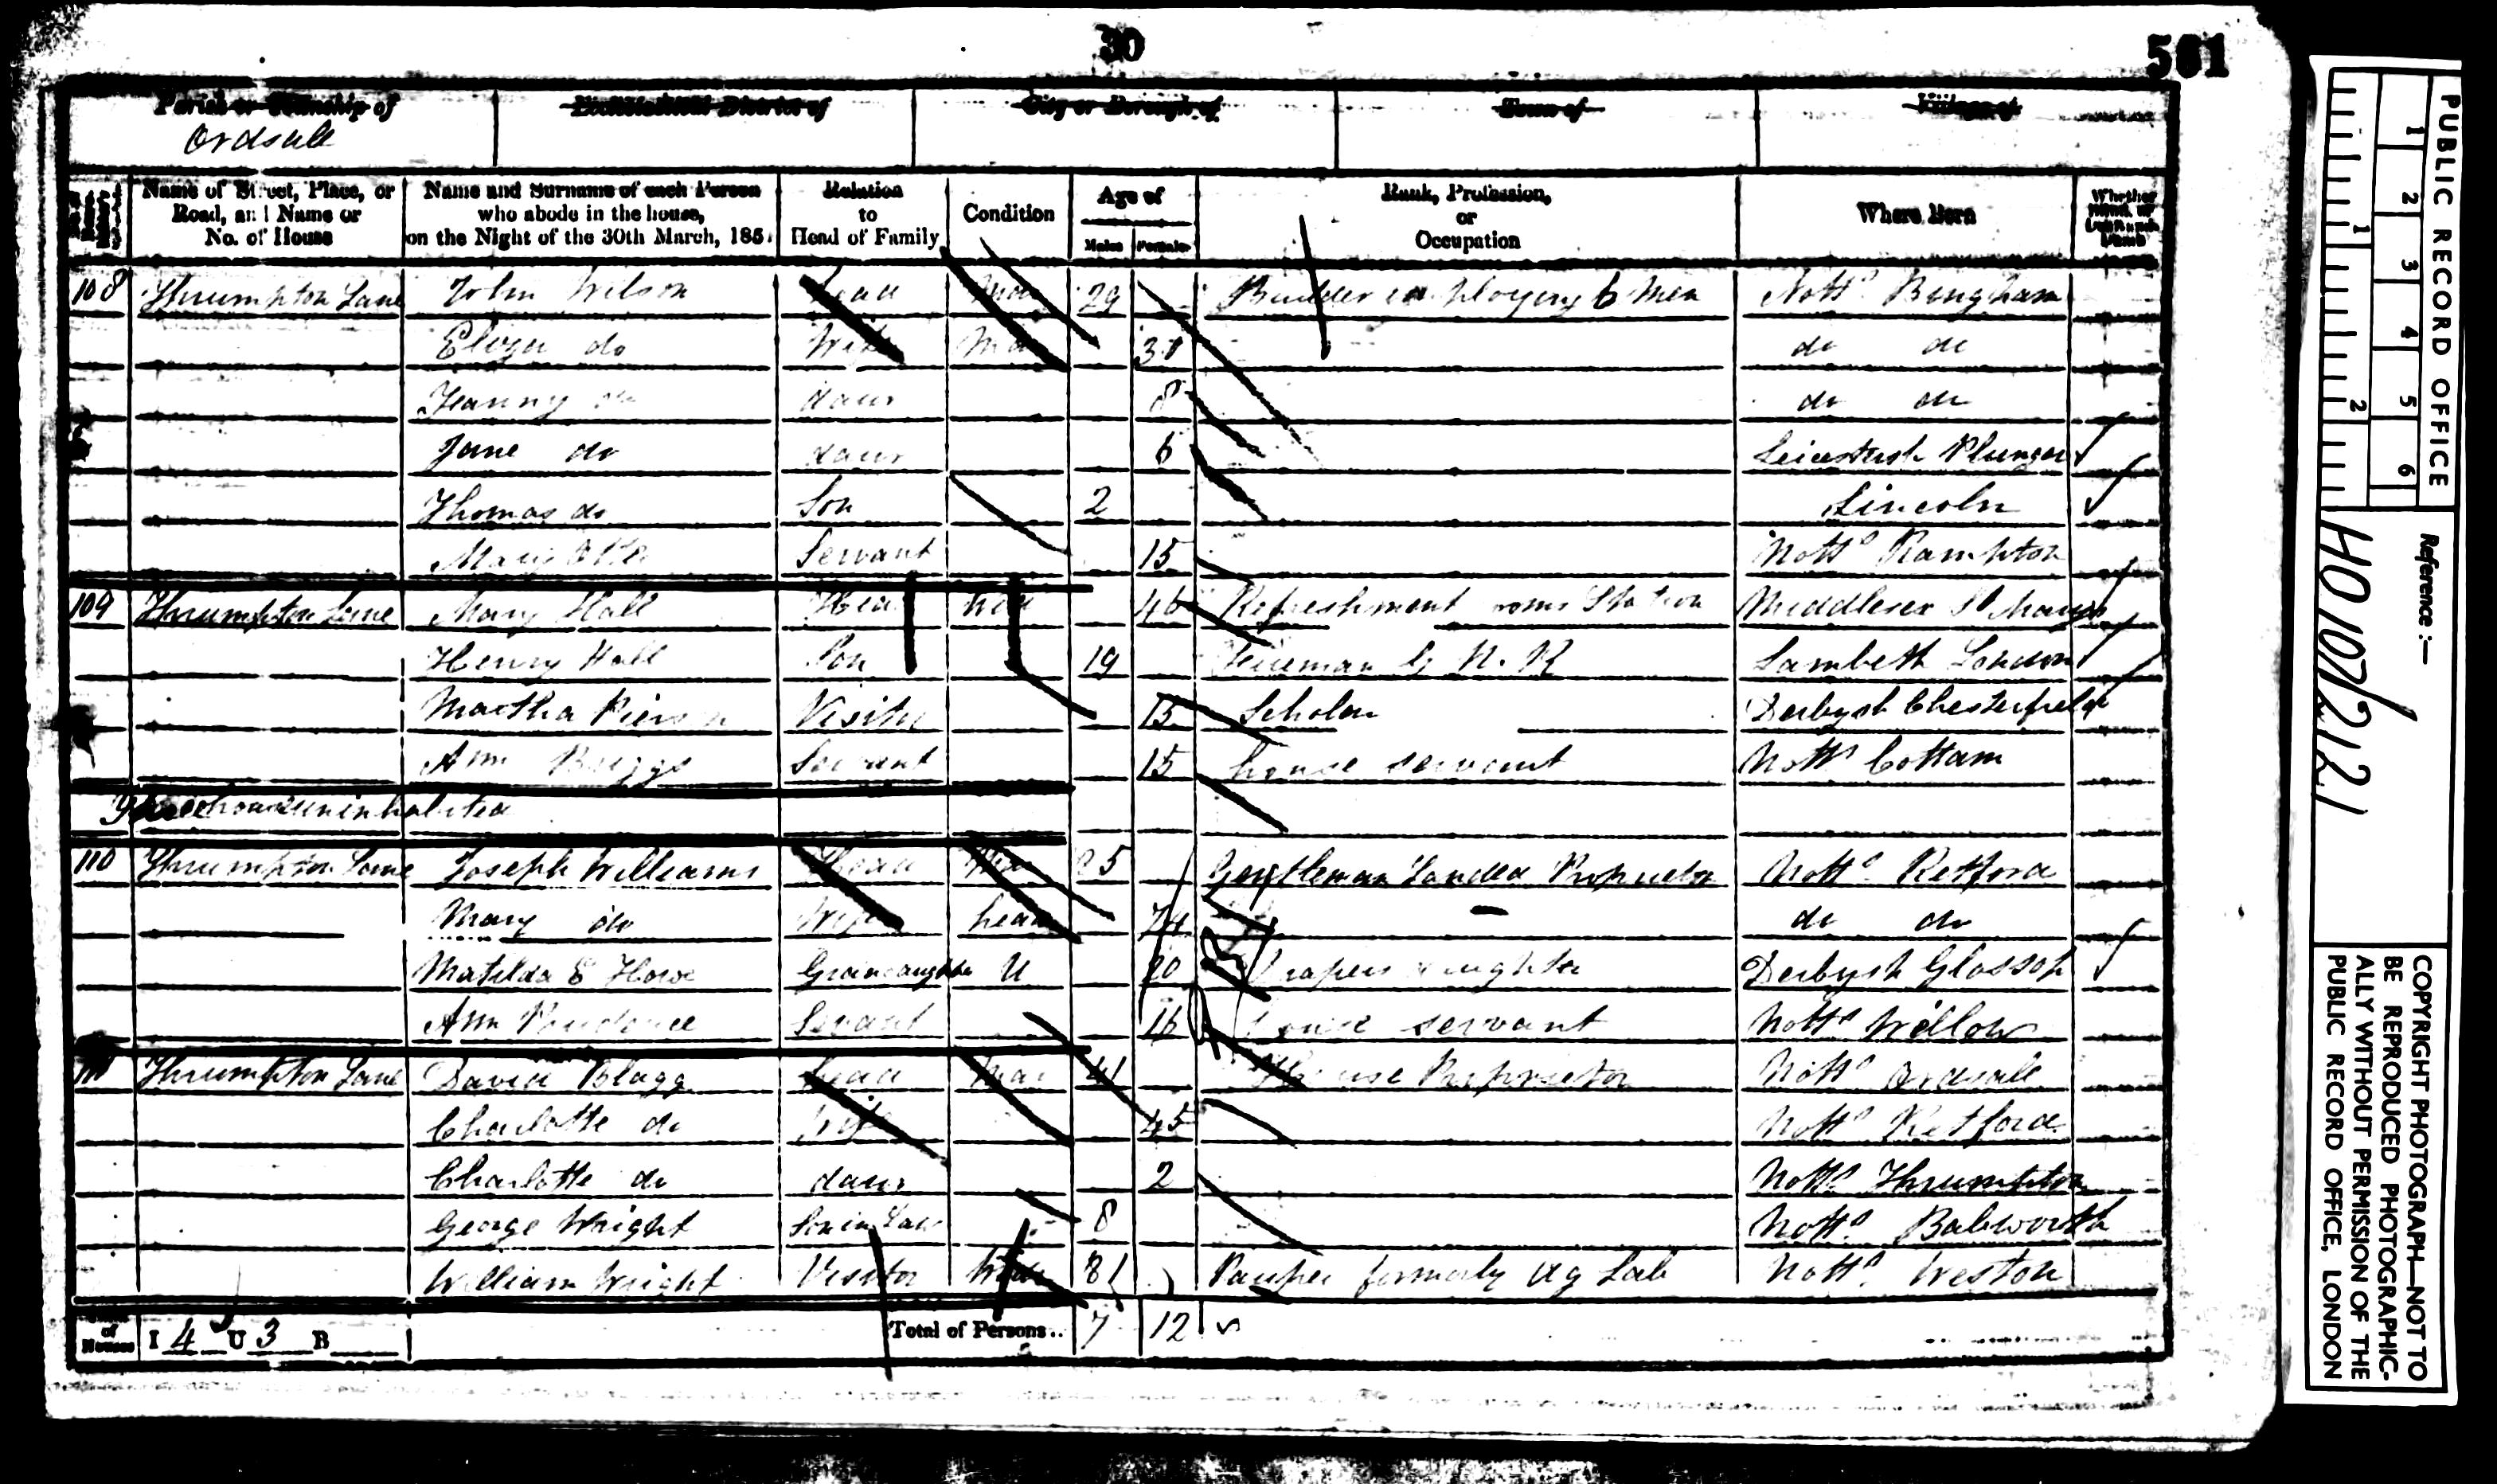 30
501
Parish or Township of
Ecclesiastical District of
City or Borough of
Town of
Village of
Ordsall
Name of Street, Place, or Road, and Name or No. of House
Name and Surname of each Person who abode in the house, on the Night of the 30th March, 1851
Relation to Head of Family
Condition
Age of
Males Females
Rank, Profession, or Occupation
Where Born
Whether Blind, or Deaf and Dumb
108 Thrumpton Lane John Wilson Head Mar 29 Builder employing 6 Men Notts Bingham
Eliza do Wife Mar do do
Fanny do daur 8 do do
Jane do daur 6 Leicestersh Plungar
Thomas do Son 2 Lincoln
Mary Servant 15 Notts Rampton
109 Thrumpton Lane Mary Hall Head Wid 46 Refreshment rooms Station Middlesex St
Henry Hall Son 19 Fireman G N. R Lambeth London
Martha Visitor 15 Scholar Derbysh Chesterfield
Ann Briggs Servant 15 house servant Notts Cottam
houses uninhabited
110 Thrumpton Lane Joseph Williams Head Mar Gentleman Landed Proprietor Notts Retford
Mary do Wife 74 do do
Matilda E Howe Grandaughter U 20 Drapers daughter Derbysh Glossop
Ann Servant 16 house servant Notts
111 Thrumpton Lane David Blagg Head Mar 41 House Proprietor Notts Ordsall
Charlotte do Wife 45 Notts Retford
Charlotte do daur 2 Notts Thrumpton
George Wright Son in Law 8 Notts Babworth
William Wright Visitor Widr 81 Pauper formerly Ag Lab Notts Weston
of Houses I 4 U 3 B
Total of Persons.. 7 12
PUBLIC RECORD OFFICE
1 2 3 4 5 6
1 2
Reference :—
HO 107/2121
COPYRIGHT PHOTOGRAPH—NOT TO
BE REPRODUCED PHOTOGRAPHIC-
ALLY WITHOUT PERMISSION OF THE
PUBLIC RECORD OFFICE, LONDON